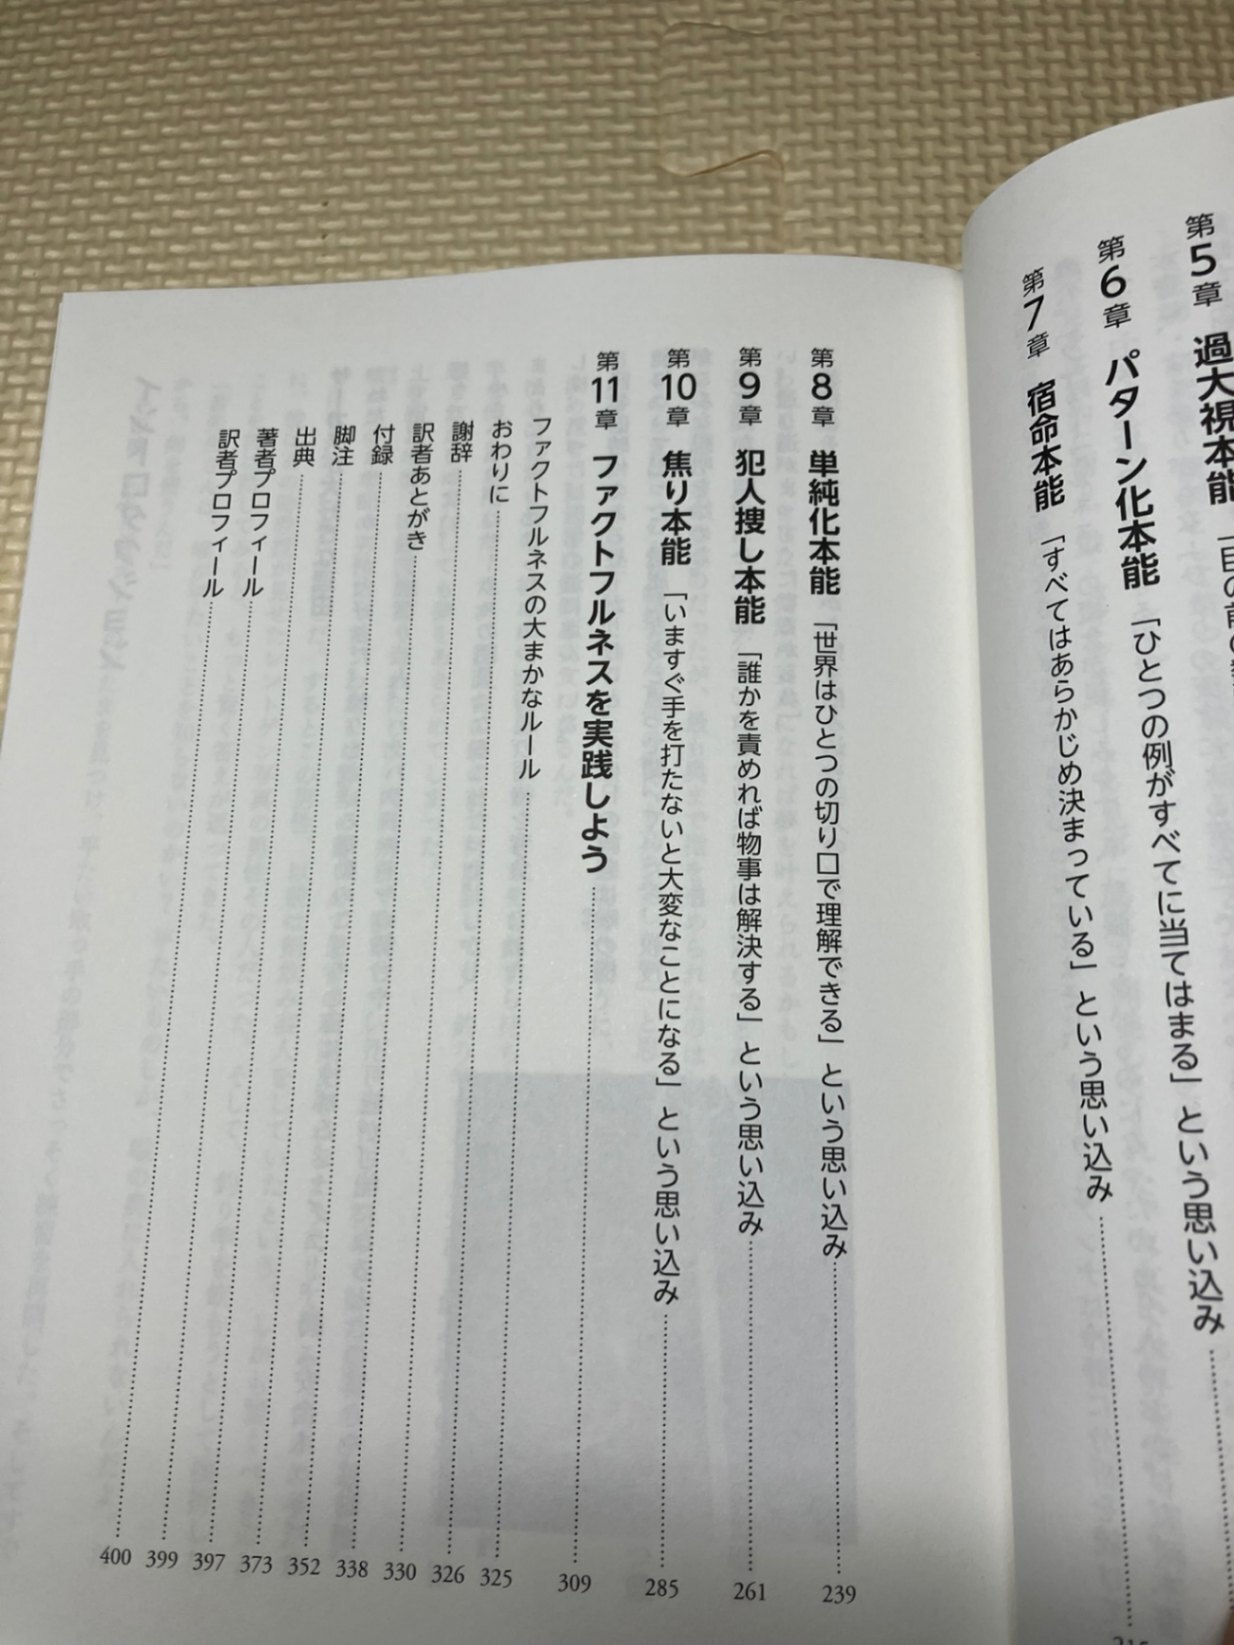 第5章 過大視本能 「目の前の
第6章 パターン化本能 「ひとつの例がすべてに当てはまる」という思い込み
第7章 宿命本能 「すべてはあらかじめ決まっている」という思い込み
第8章 単純化本能 「世界はひとつの切り口で理解できる」という思い込み 239
第9章 犯人捜し本能 「誰かを責めれば物事は解決する」という思い込み 261
第10章 焦り本能 「いますぐ手を打たないと大変なことになる」という思い込み 285
第11章 ファクトフルネスを実践しよう 309
ファクトフルネスの大まかなルール 325
おわりに 326
謝辞 330
訳者あとがき 338
付録 352
脚注 373
出典 397
著者プロフィール 399
訳者プロフィール 400